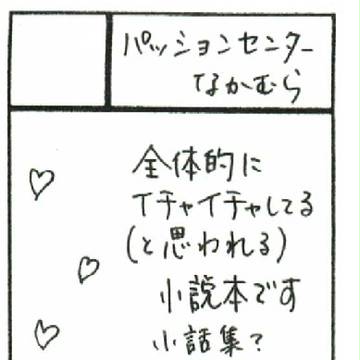 パッションセンター
なかむら
全体的に
イチャイチャしてる
(と思われる)
小説本です
小話集?